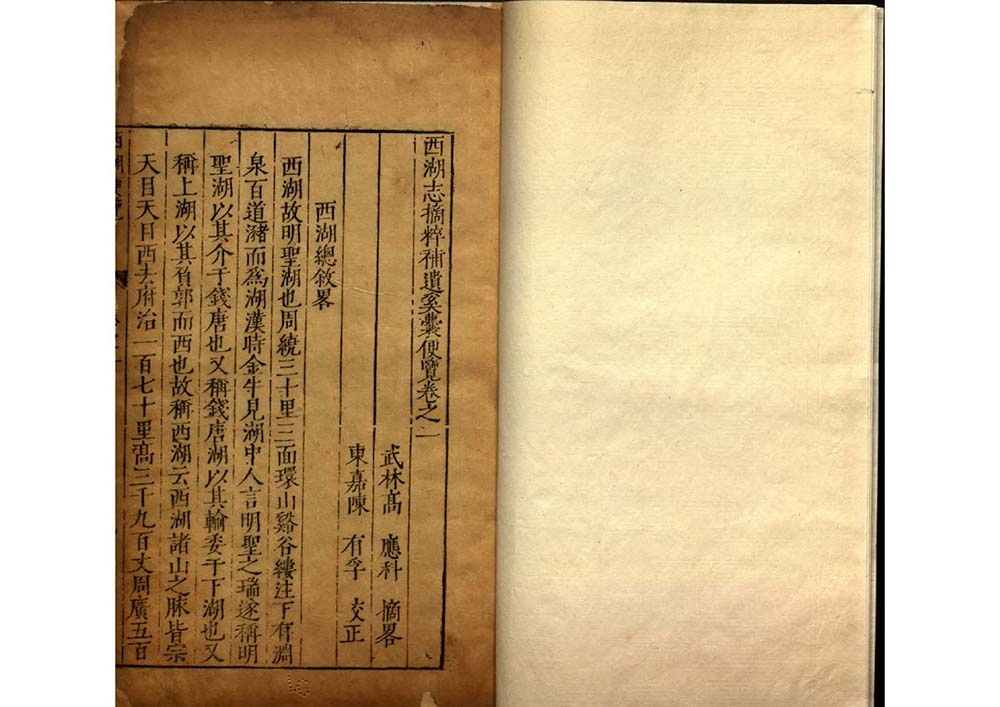 西湖志摘粹補遺奚囊便覽卷之一
武林高 應科 摘畧
東嘉陳 有孚 校正
西湖總敘畧
西湖故明聖湖也周繞三十里三面環山谿谷縷注下有淵
泉百道瀦而爲湖漢時金牛見湖中人言明聖之瑞遂稱明
聖湖以其介于錢唐也又稱錢唐湖以其輸委于下湖也又
稱上湖以其負郭而西也故稱西湖云西湖諸山之脉皆宗
天目天目西去府治一百七十里高三千九百丈周廣五百